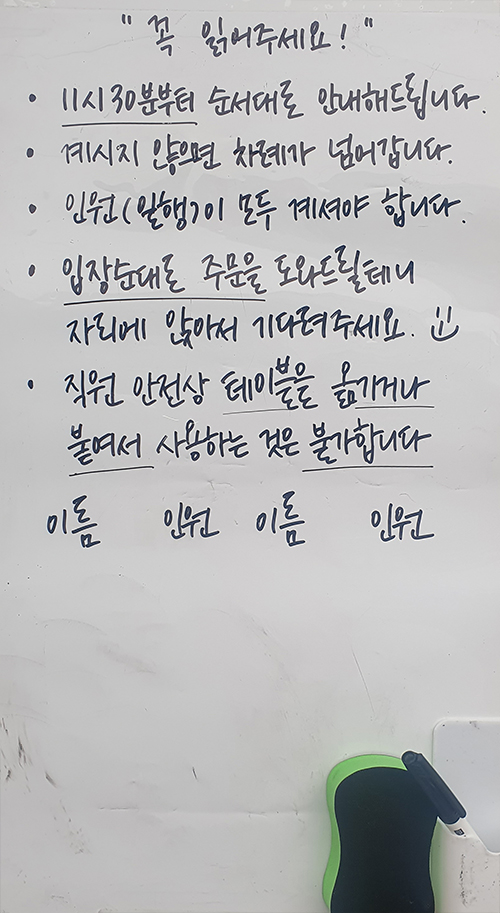 " 꼭 읽어주세요! "
• 11시 30분부터 순서대로 안내해드립니다.
• 계시지 않으면 차례가 넘어갑니다.
• 인원(일행)이 모두 계셔야 합니다.
• 입장순대로 주문을 도와드릴테니
자리에 앉아서 기다려주세요. :)
• 직원 안전상 테이블을 옮기거나
붙여서 사용하는 것은 불가합니다
이름 인원 이름 인원